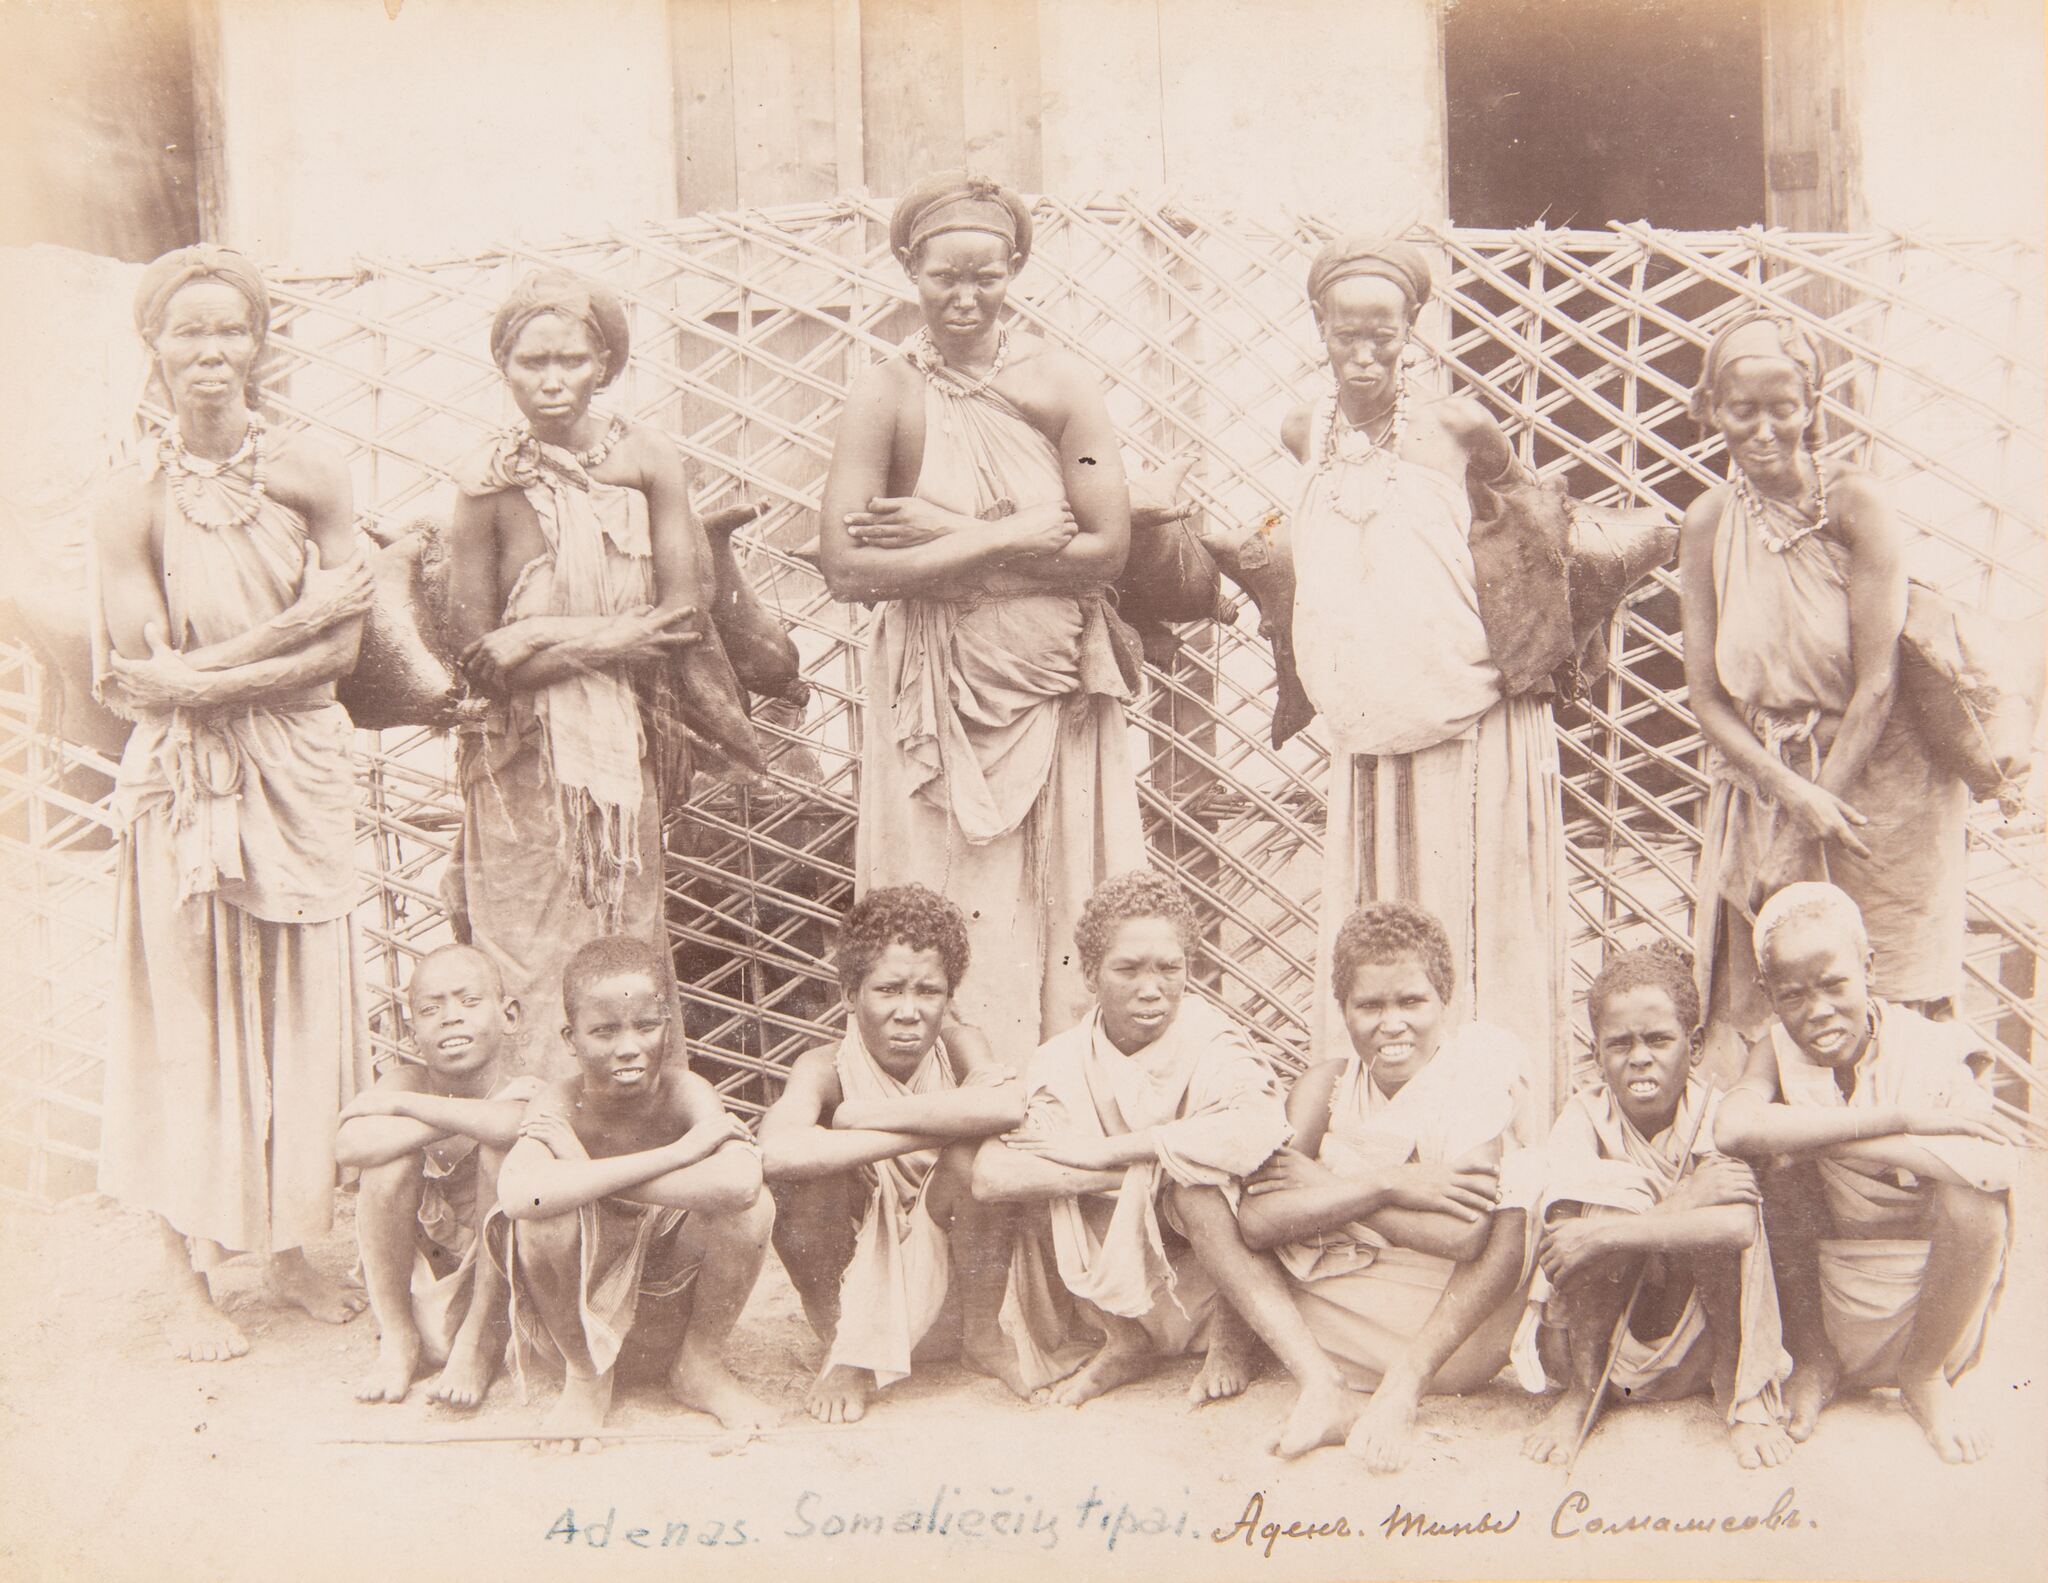 Adenas. Somaliečių tipai. Аденъ. Типы Сомалисовъ.